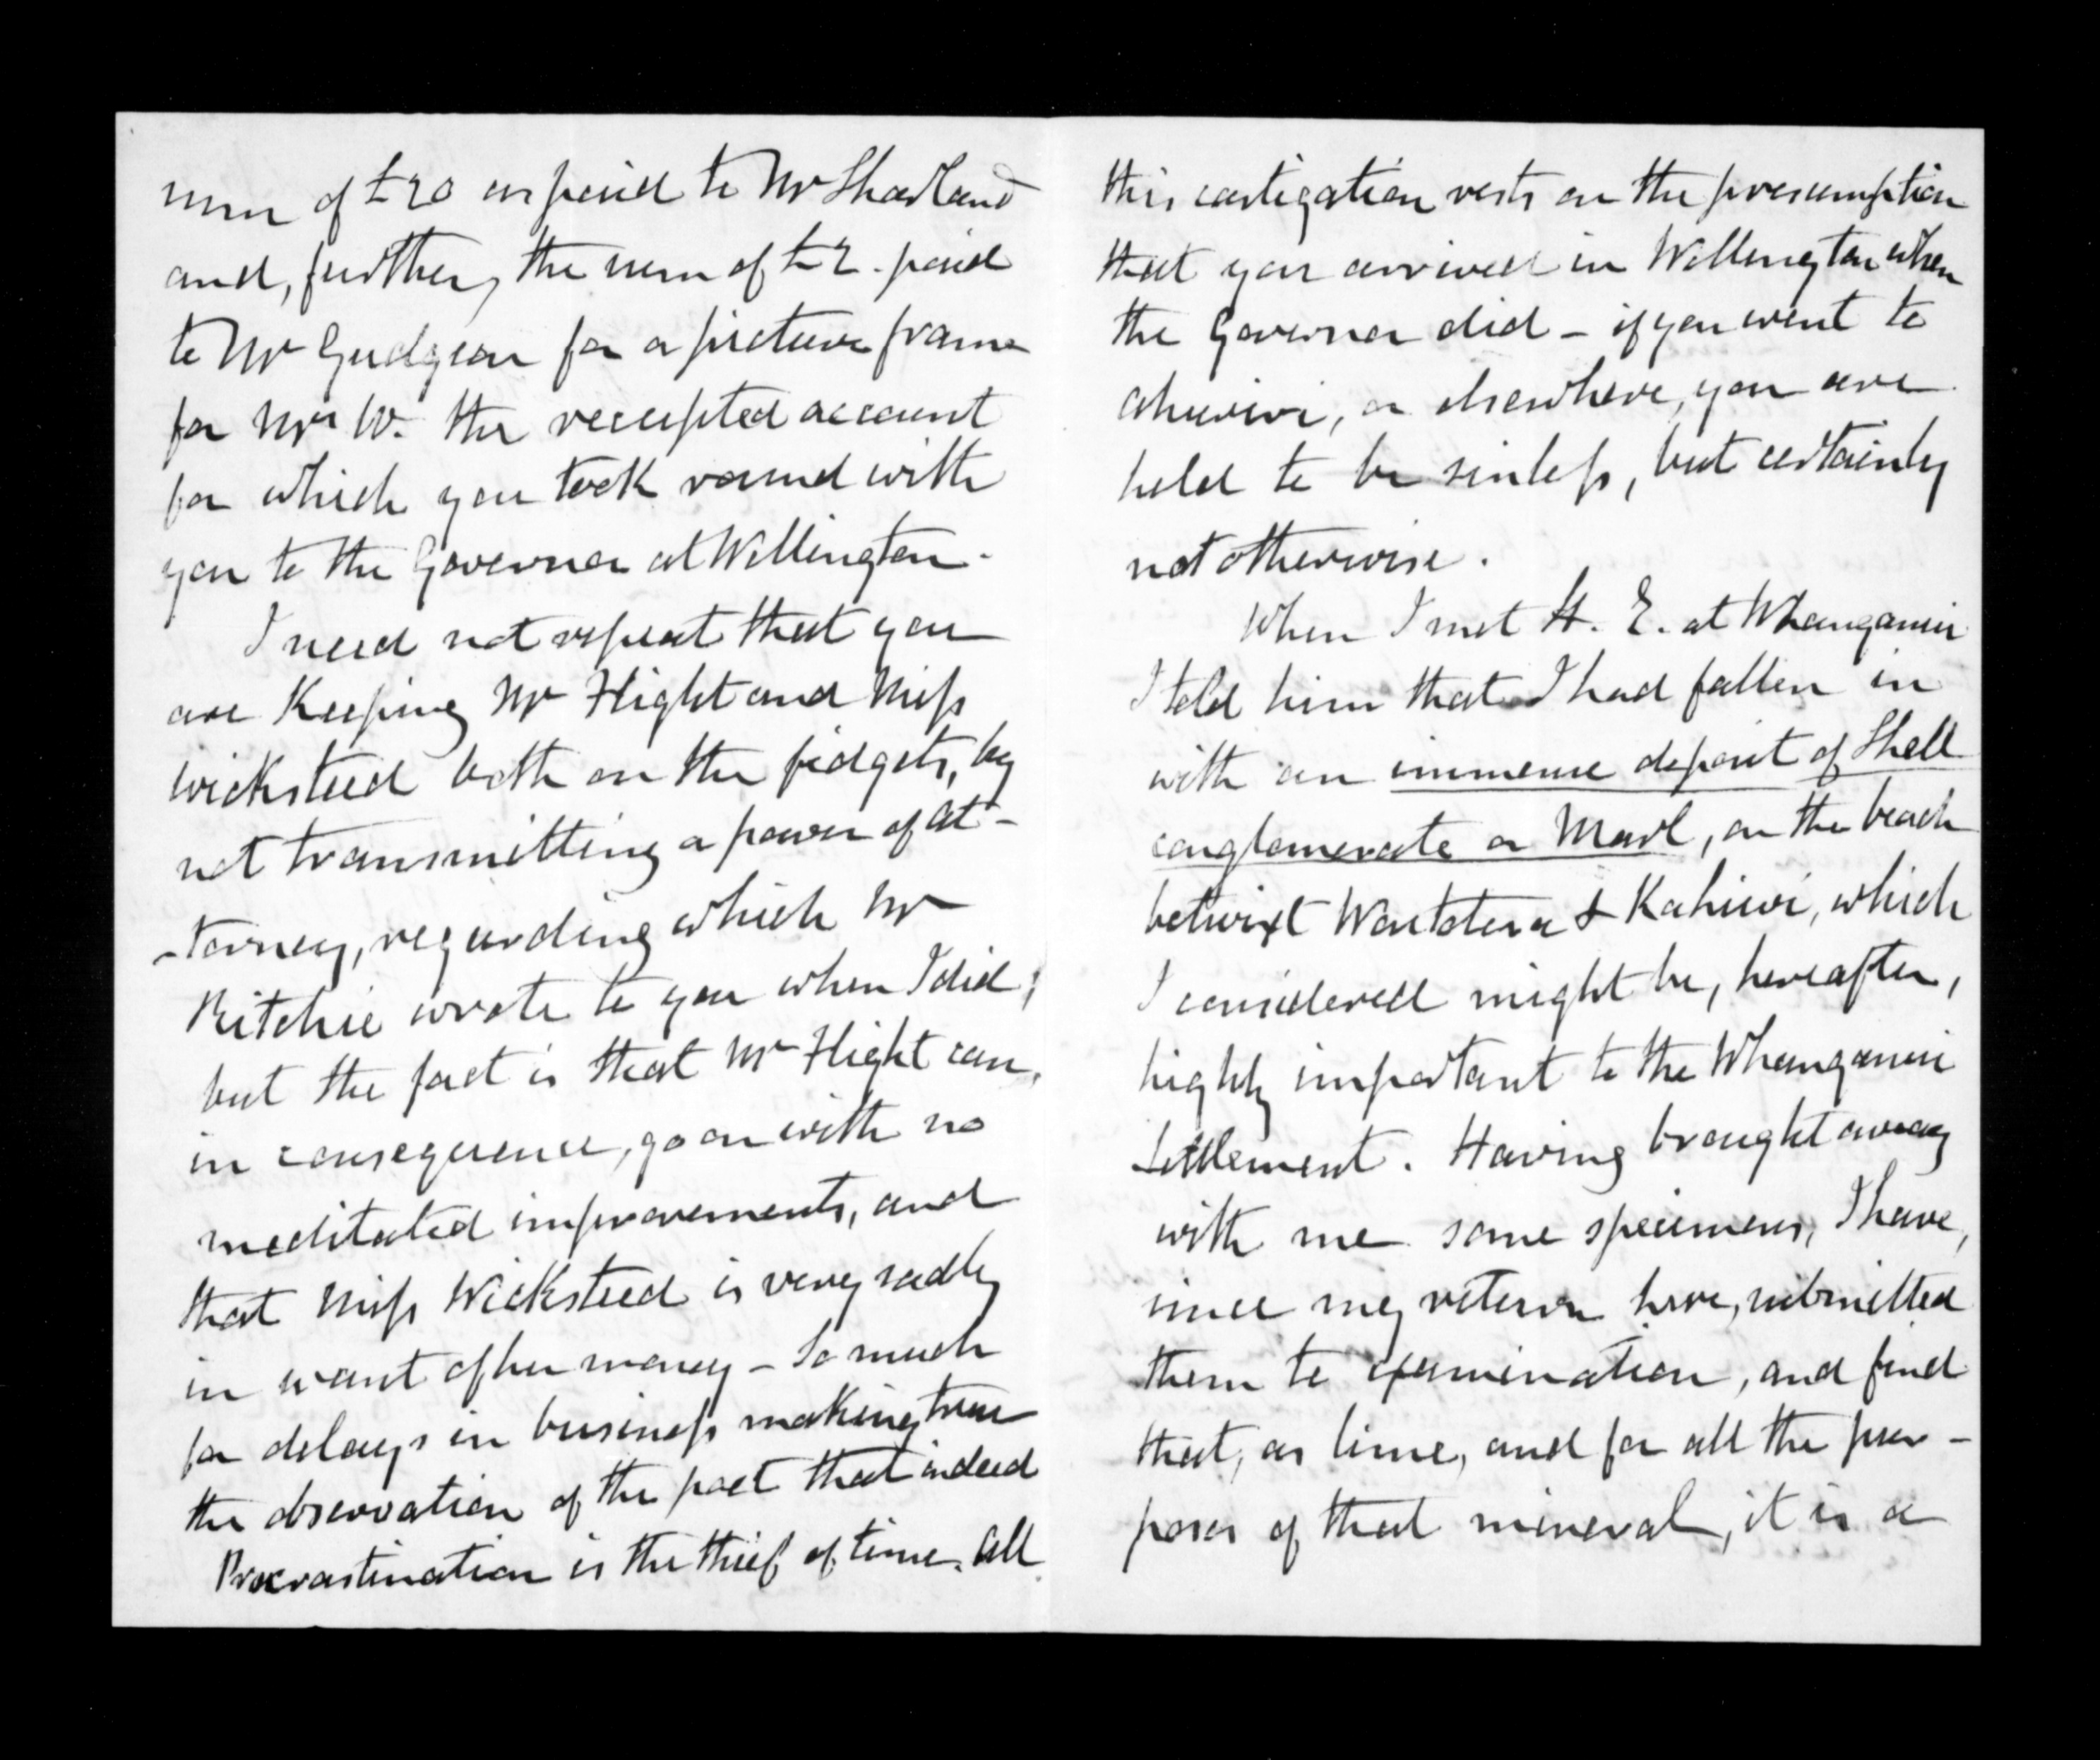 sum of £20 as paid to Mr Sharland
and, further, the sum of £2. paid
to Mr Gudgeon for a picture frame
for Mrs W. the receipted account
for which you took round with
you to the Governor at Wellington.
I need not repeat that you
are keeping Mr Flight and Miss
Wicksteed both on the fidgets, by
not transmitting a power of at-
-torney, regarding which Mr
Ritchie wrote to you when I did;
but the fact is that Mr Flight can,
in consequence, go on with no
meditated improvements, and
that Miss Wicksteed is very sadly
in want of her money - So much
for delays in business making true
the observation of the poet that indeed
Procrastination is the thief of time. All
this castigation rests on the presumption
that you arrived in Wellington when
the Governor did - if you went to
Ahuriri, or elsewhere, you are
held to be sinless, but certainly
not otherwise.
When I met H. E. at Whanganui
I told him that I had fallen in
with an immense deposit of Shell
conglomerate or Marl, on the beach
betwixt Waitotara & Kahiwi, which
I considered might be, hereafter,
highly important to the Whanganui
Settlement. Having brought away
with me some specimens, I have,
since my return here, submitted
them to examination, and find
that, as lime, and for all the pur-
poses of that mineral, it is a